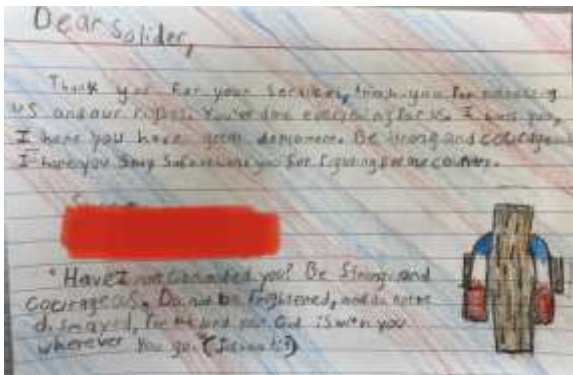 Dear Solider,
Thank you For your Services, thank you For
US and our rights. You've done everything for us. I
I hope you have great deploment. Be strong and
I hope you Stay Safe thank you For Figuting For the
"Have I not you? Be Strong and
courageous. Do not be frightened, and do not be
dismayed, For the lord your God is with you
wherever you go."